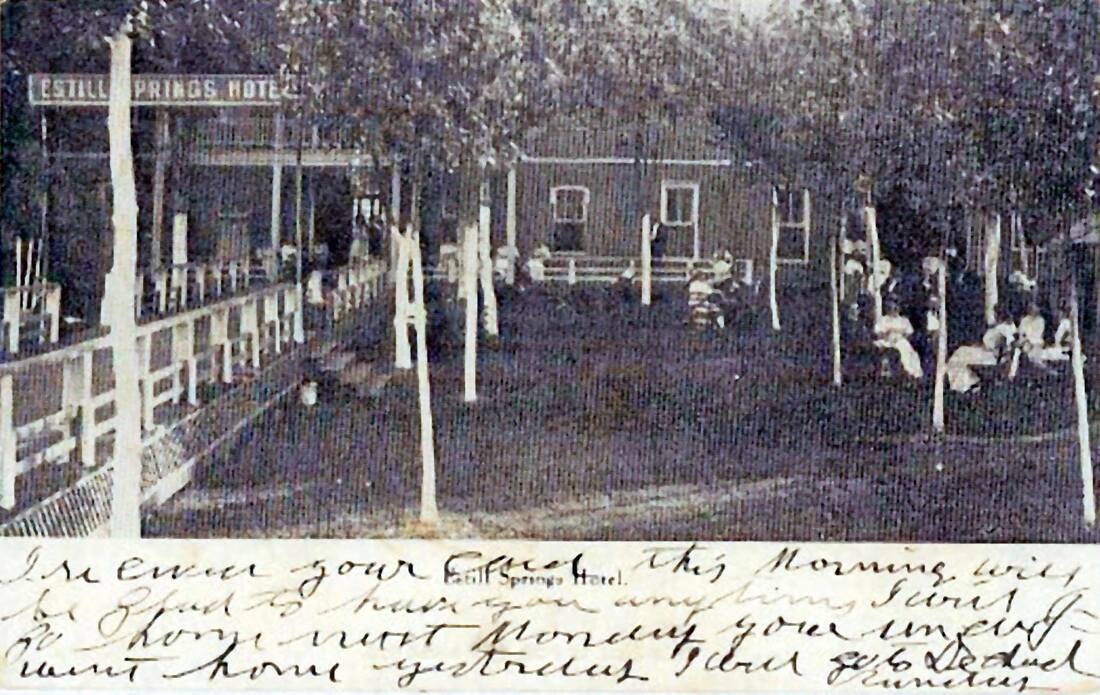 ESTILL SPRINGS HOTEL
Estill Springs Hotel.
I re your card this Morning will
be glad to have you any time I will
go home next Monday your
went home yesterday I will go to